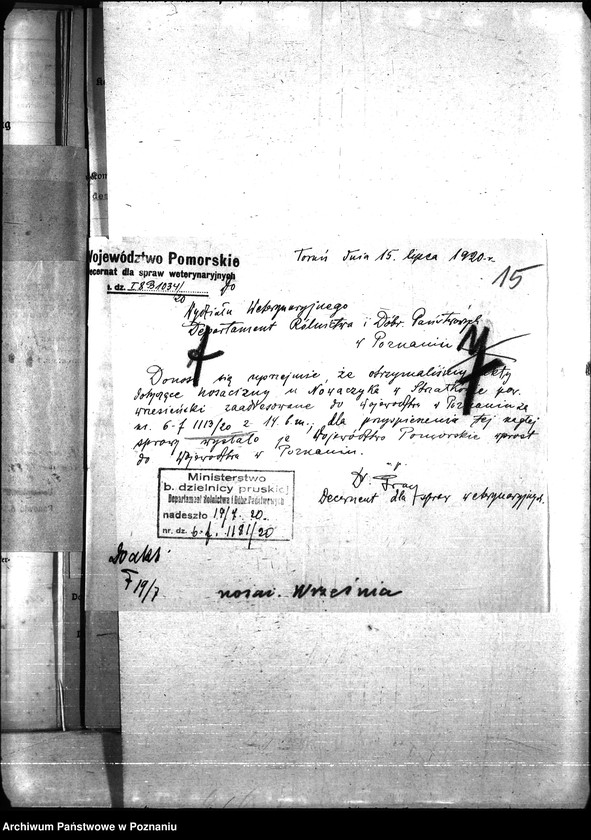 Województwo Pomorskie
Decernat dla spraw weterynaryjnych
l. dz. I 8. B 1034/20
Toruń dnia 15. lipca 1920 r.
15
Do
Wydziału Weterynaryjnego
Departament Rolnictwa i Dóbr. Państwowych
w Poznaniu
Donoszę się uprzejmie, że otrzymaliśmy akty
dotyczące nosacizny u Nowaczyka w Strzałkowie pow.
wrzesiński zaadresowane do Województwa w Poznaniu za
nr. 6-f 1113/20 z 14. b.m.; dla przyspieszenia tej nagłej
sprawy wysłało je Województwo Pomorskie wprost
do Województwa w Poznaniu.
Dr.
Decernent dla spraw weterynaryjnych.
Ministerstwo
b. dzielnicy pruskiej
Departament Rolnictwa i Dóbr Państwowych
nadeszło 19/7. 20.
nr. dz. 6-f. 1181/20
Do akt.
F 19/7
nosac. Września
Archiwum Państwowe w Poznaniu